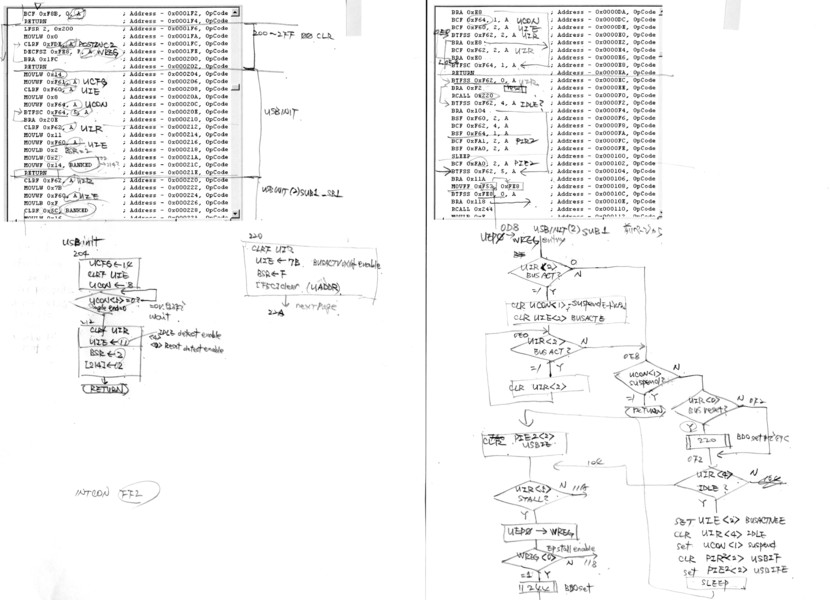 BCF 0xF0B, 0, A ; Address - 0x0001F2, OpCode
RETURN ; Address - 0x0001F4, OpCode
LFSR 2, 0x200 ; Address - 0x0001F6, OpCode
MOVLW 0x0 ; Address - 0x0001FA, OpCode
CLRF 0xFDE, A POSTINC2 ; Address - 0x0001FC, OpCode
DECFSZ 0xFE8, F, A WREG ; Address - 0x0001FE, OpCode
BRA 0x1FC ; Address - 0x000200, OpCode
RETURN ; Address - 0x000202, OpCode
MOVLW 0x14 ; Address - 0x000204, OpCode
MOVWF 0xF61, A UCFG ; Address - 0x000206, OpCode
CLRF 0xF60, A UIE ; Address - 0x000208, OpCode
MOVLW 0x8 ; Address - 0x00020A, OpCode
MOVWF 0xF64, A UCON ; Address - 0x00020C, OpCode
BTFSC 0xF64, 5, A ; Address - 0x00020E, OpCode
BRA 0x20E ; Address - 0x000210, OpCode
CLRF 0xF62, A UIR ; Address - 0x000212, OpCode
MOVLW 0x11 ; Address - 0x000214, OpCode
MOVWF 0xF60, A UIE ; Address - 0x000216, OpCode
MOVLB 0x2 BSR=2 ; Address - 0x000218, OpCode
MOVLW 0x2 ; Address - 0x00021A, OpCode
MOVWF 0x14, BANKED ; Address - 0x00021C, OpCode
RETURN ; Address - 0x00021E, OpCode
CLRF 0xF62, A UIR ; Address - 0x000220, OpCode
MOVLW 0x7B ; Address - 0x000222, OpCode
MOVWF 0xF60, A UIE ; Address - 0x000224, OpCode
MOVLB 0xF ; Address - 0x000226, OpCode
CLRF 0x6C, BANKED ; Address - 0x000228, OpCode
200~2FF CLR
USBINIT
USBINIT(2)SUB1
USBinit
204
UCFG←14
CLRF UIE
UCON←8
wait
212
CLRF UIR
UIE←11
IDLE detect enable
Reset detect enable
BSR←2
[214]←2
RETURN
INTCON FF2
220
CLRF UIR
UIE←7B
BSR←F
clear (UADDR)
next page
22A
BRA 0xE8 ; Address - 0x0000DA, OpCode
BCF 0xF64, 1, A UCON ; Address - 0x0000DC, OpCode
BCF 0xF60, 2, A UIE ; Address - 0x0000DE, OpCode
BTFSS 0xF62, 2, A UIR ; Address - 0x0000E0, OpCode
BRA 0xE8 ; Address - 0x0000E2, OpCode
BCF 0xF62, 2, A UIR ; Address - 0x0000E4, OpCode
BRA 0xE0 ; Address - 0x0000E6, OpCode
BTFSC 0xF64, 1, A ; Address - 0x0000E8, OpCode
RETURN ; Address - 0x0000EA, OpCode
BTFSS 0xF62, 0, A UIR ; Address - 0x0000EC, OpCode
BRA 0xF2 ; Address - 0x0000EE, OpCode
RCALL 0x220 ; Address - 0x0000F0, OpCode
BTFSS 0xF62, 4, A IDLE? ; Address - 0x0000F2, OpCode
BRA 0x104 ; Address - 0x0000F4, OpCode
BSF 0xF60, 2, A ; Address - 0x0000F6, OpCode
BCF 0xF62, 4, A ; Address - 0x0000F8, OpCode
BSF 0xF64, 1, A ; Address - 0x0000FA, OpCode
BCF 0xFA1, 2, A PIR2 ; Address - 0x0000FC, OpCode
BSF 0xFA0, 2, A ; Address - 0x0000FE, OpCode
SLEEP ; Address - 0x000100, OpCode
BCF 0xFA0, 2, A PIE2 ; Address - 0x000102, OpCode
BTFSS 0xF62, 5, A ; Address - 0x000104, OpCode
BRA 0x11A ; Address - 0x000106, OpCode
MOVFF 0xF52, 0xFE8 ; Address - 0x000108, OpCode
BTFSS 0xFE8, 0, A ; Address - 0x00010C, OpCode
BRA 0x118 ; Address - 0x00010E, OpCode
RCALL 0x244 ; Address - 0x000110, OpCode
0D8 USBINIT(2)SUB1
UEP0 WREG entry
UIR<2>
BUSACT?
N
CLR UCON<1>
CLR UIE<2> BUSACTE
0E0
UIR<2>
BUSACT?
N
Y
CLR UIR<2>
0E8
UCON<1>
suspend?
N
RETURN
UIR<0>
Busreset?
N
0F2
Y
220
0F2
UIR<4>
IDLE?
N
Y
SET UIE<2> BUSACTVEE
CLR UIR<4> IDLE
set UCON<1> suspend
CLR PIR2<2> USBIF
set PIE2<2> USBIFE
SLEEP
CLR PIE2<2>
USBIE
104
UIR<5>
STALL?
N 11A
Y
UEP0→WREG
EPstall enable
WREG<0>
N 118
=1 Y
244 BD0set